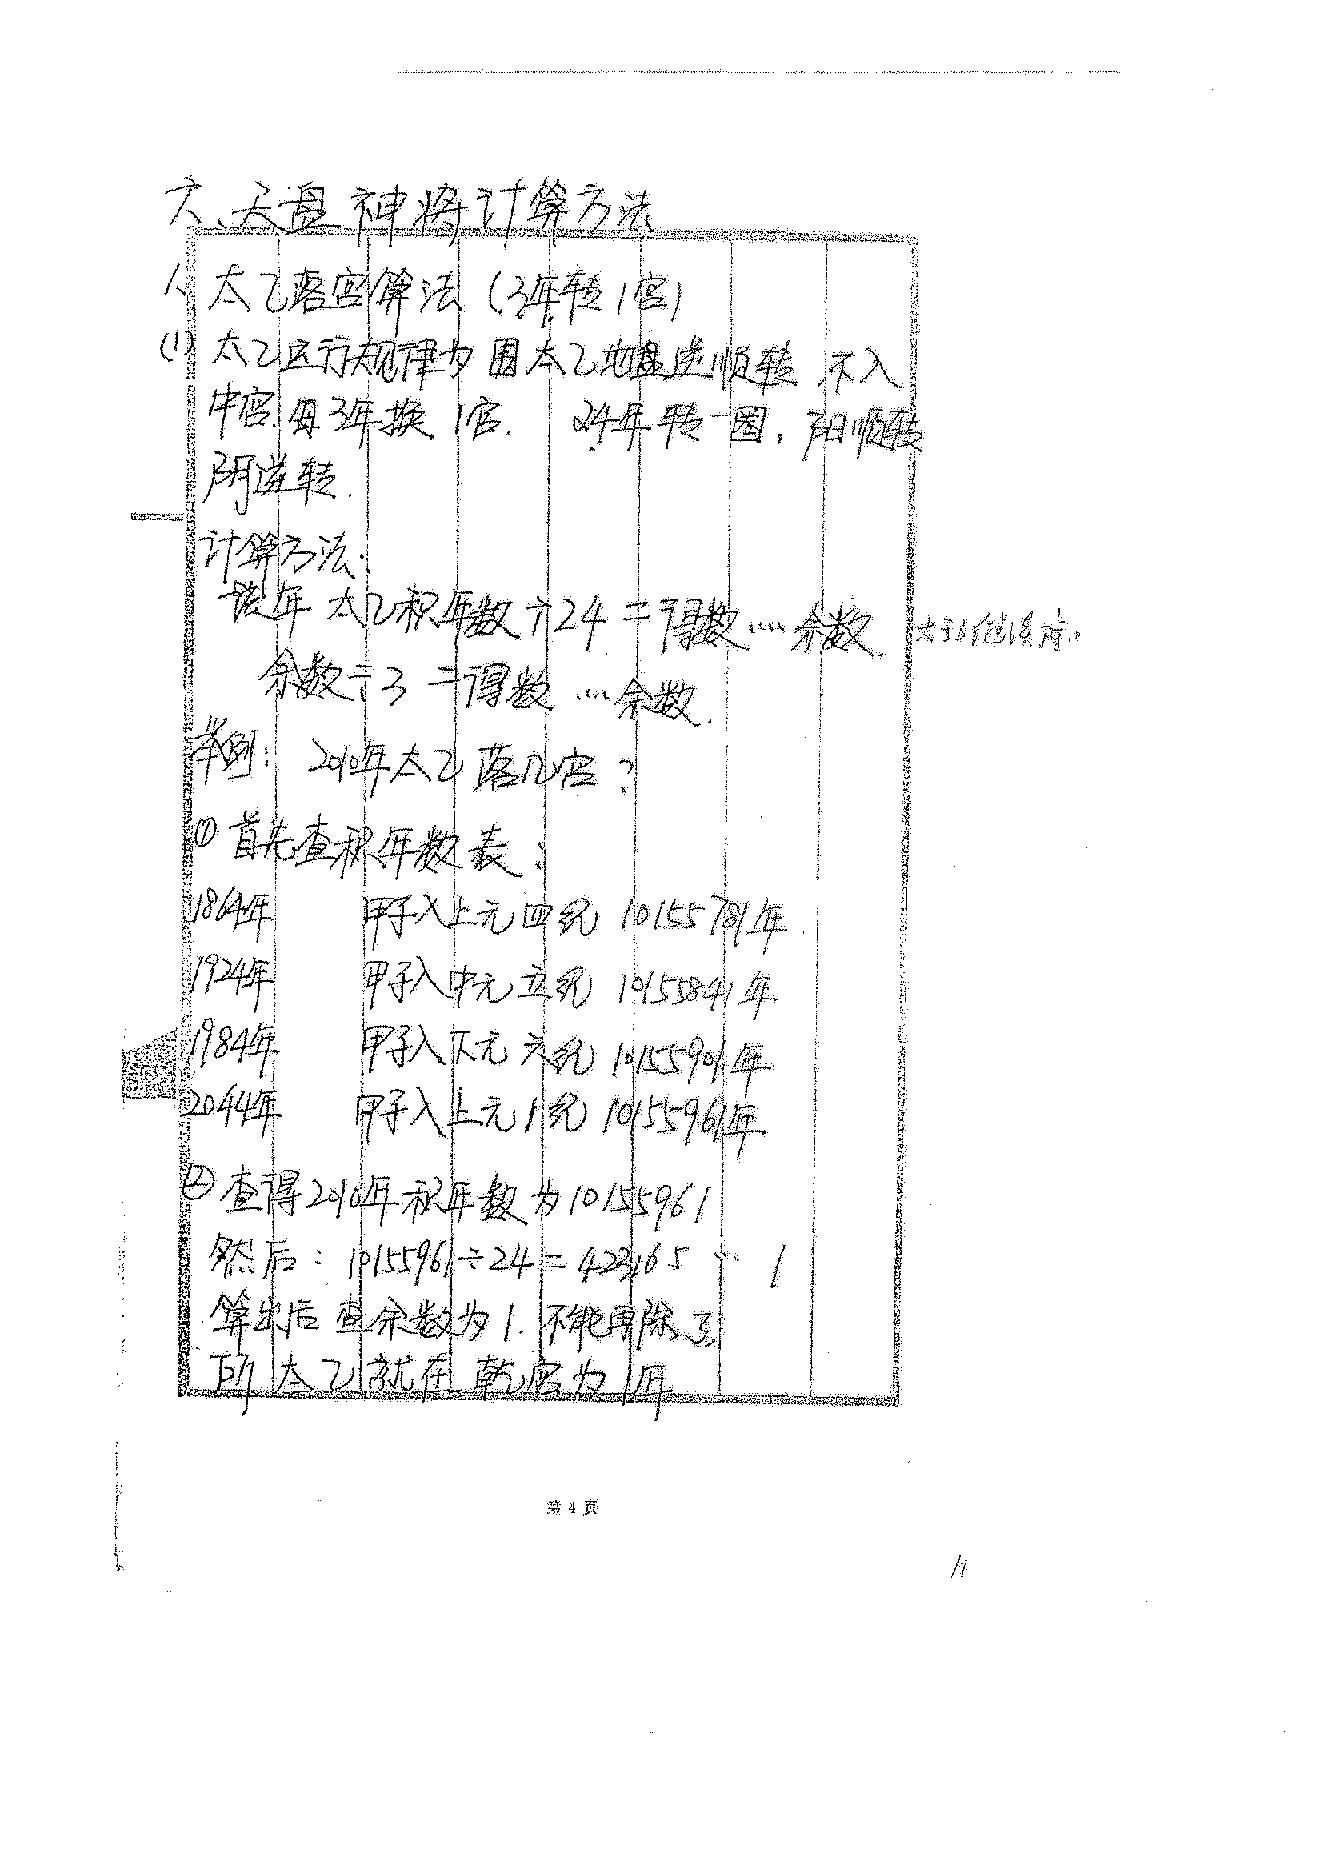 六、天盘神将计算方法
1、太乙落宫算法（3年转1宫）
(1) 太乙运行规律为围太乙地盘逆顺转 不入
中宫.每3年换1宫. 24年转一圈，阳顺转
阴逆转.
计算方法：
该年太乙积年数÷24=得数……余数
余数÷3=得数……余数.
举例： 2010年太乙落几宫？
① 首先查积年数表：
1864年 甲子入上元四纪 10155781年
1924年 甲子入中元五纪 10155841年
1984年 甲子入下元六纪 10155901年
2044年 甲子入上元1纪 10155961年
② 查得2010年积年数为10155961
然后：10155961÷24=423165 … 1
算出后查余数为1.不能再除3
所太乙就在乾宫为1年
第 4 页